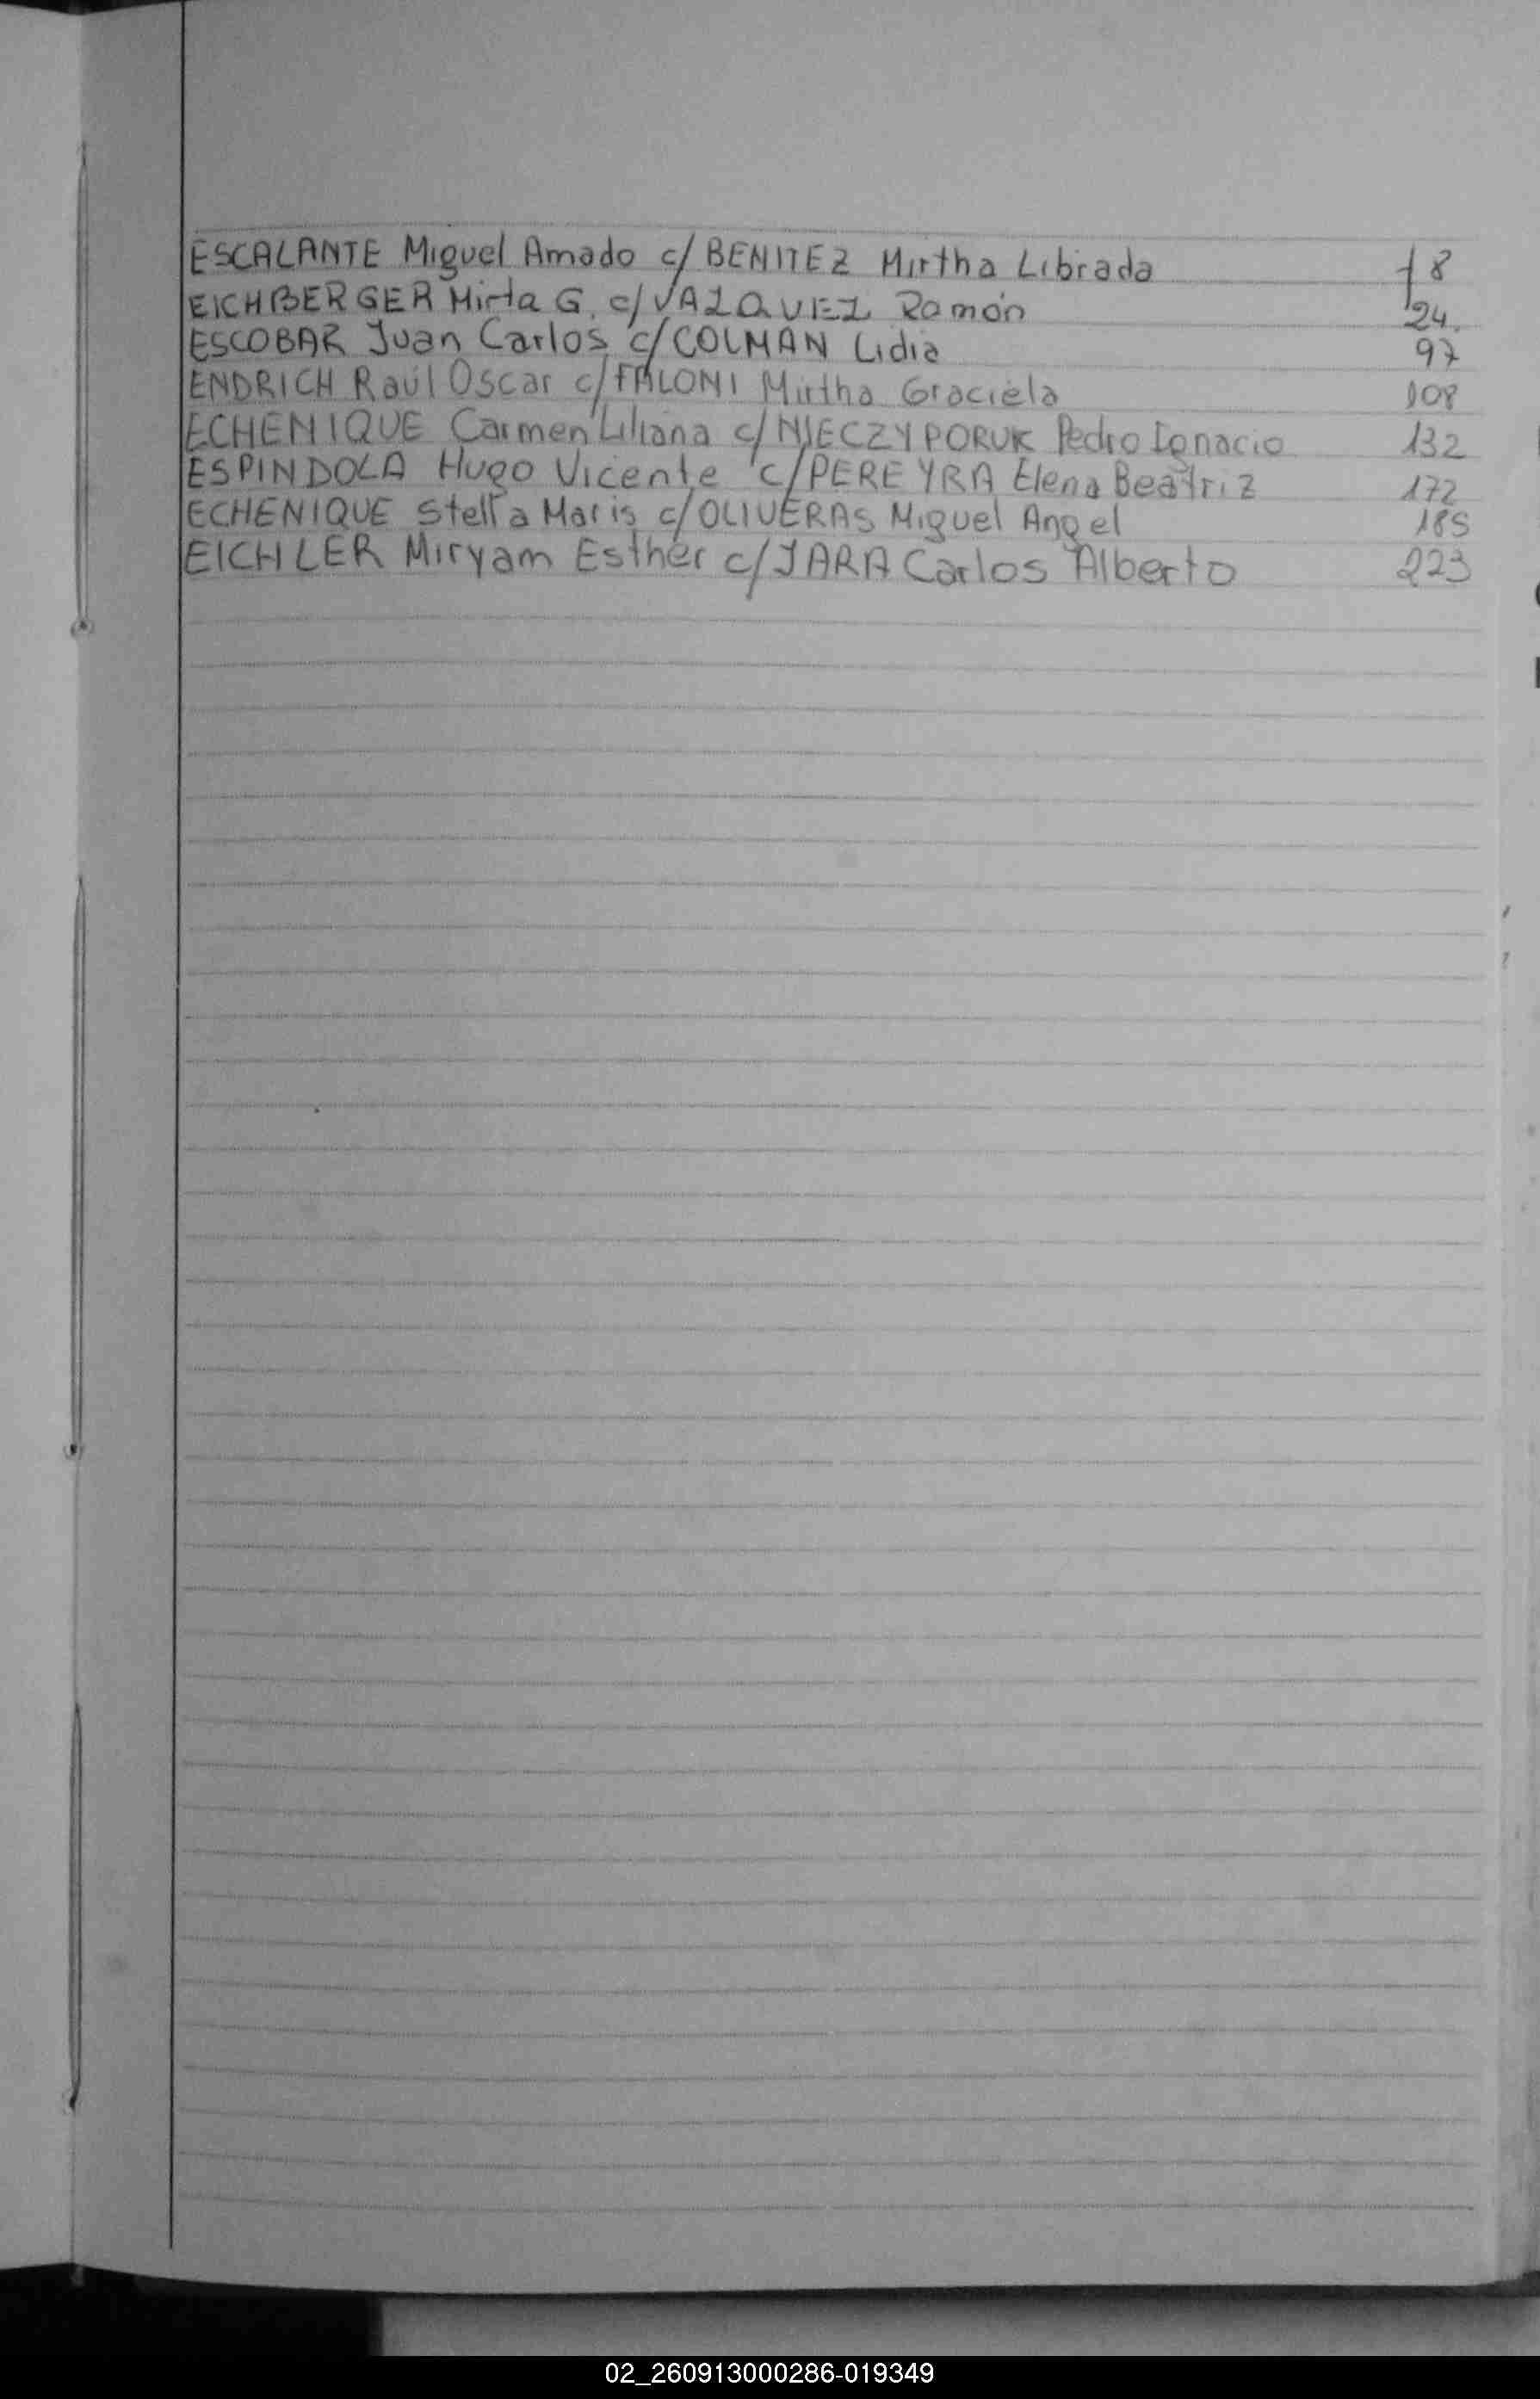 ESCALANTE Miguel Amado c/ BENITEZ Mirtha Librada f 8
EICHBERGER Mirta G. c/ VAZQUEZ Ramón 24.
ESCOBAR Juan Carlos c/ COLMAN Lidia 97
ENDRICH Raúl Oscar c/ FALONI Mirtha Graciela 108
ECHENIQUE Carmen Liliana c/ NIECZYPORUK Pedro Ignacio 132
ESPINDOLA Hugo Vicente c/ PEREYRA Elena Beatriz 172
ECHENIQUE Stella Maris c/ OLIVERAS Miguel Angel 185
EICHLER Miryam Esther c/ JARA Carlos Alberto 223
02_260913000286-019349